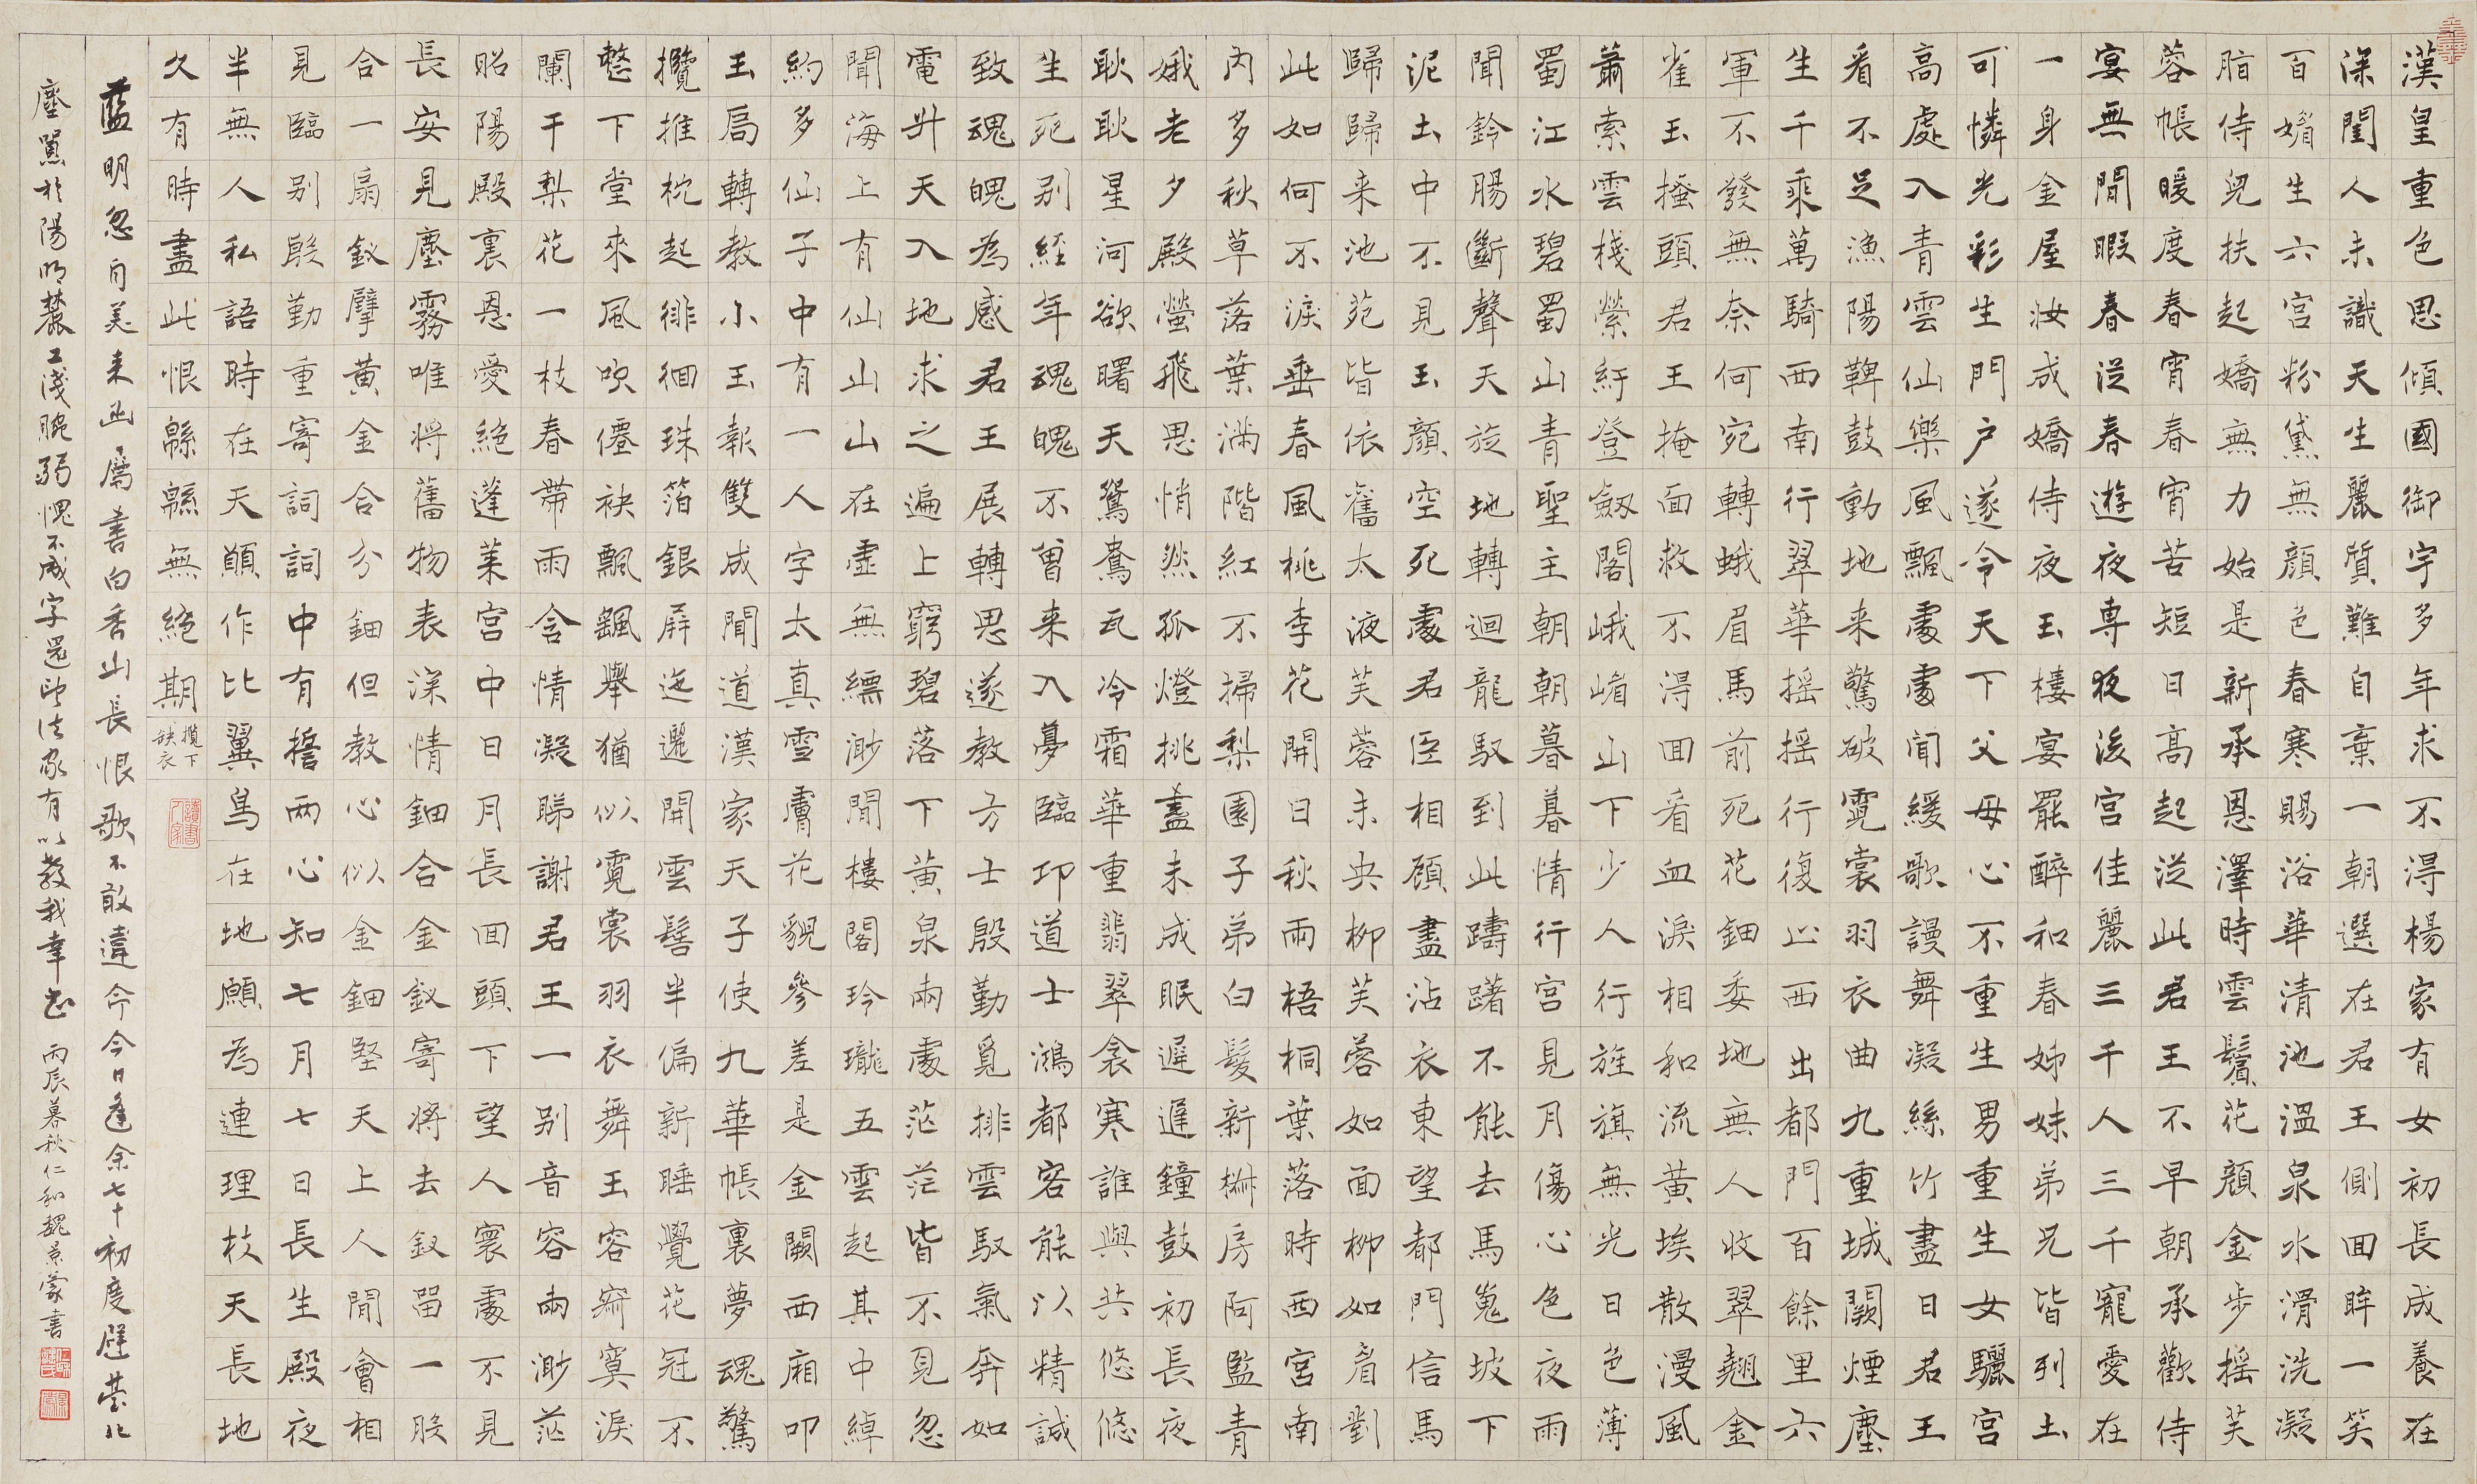 漢皇重色思傾國御宇多年求不得楊家有女初長成養在
深閨人未識天生麗質難自棄一朝選在君王側回眸一笑
百媚生六宮粉黛無顏色春寒賜浴華清池溫泉水滑洗凝
脂侍兒扶起嬌無力始是新承恩澤時雲鬢花顏金步搖芙
蓉帳暖度春宵春宵苦短日高起從此君王不早朝承歡侍
宴無閒暇春從春遊夜專夜後宮佳麗三千人三千寵愛在
一身金屋妝成嬌侍夜玉樓宴罷醉和春姊妹弟兄皆列土
可憐光彩生門戶遂令天下父母心不重生男重生女驪宮
高處入青雲仙樂風飄處處聞緩歌謾舞凝絲竹盡日君王
看不足漁陽鞞鼓動地来驚破霓裳羽衣曲九重城闕煙塵
生千乘萬騎西南行翠華搖搖行復止西出都門百餘里六
軍不發無奈何宛轉蛾眉馬前死花鈿委地無人收翠翹金
雀玉搔頭君王掩面救不得回看血淚相和流黃埃散漫風
蕭索雲棧縈紆登劔閣峨嵋山下少人行旌旗無光日色薄
蜀江水碧蜀山青聖主朝朝暮暮情行宮見月傷心色夜雨
聞鈴腸斷聲天旋地轉迴龍馭到此躊躇不能去馬嵬坡下
泥土中不見玉顏空死處君臣相顧盡沾衣東望都門信馬
歸歸来池苑皆依舊太液芙蓉未央柳芙蓉如面柳如眉對
此如何不淚垂春風桃李花開日秋雨梧桐葉落時西宮南
內多秋草落葉滿階紅不掃梨園子弟白髮新椒房阿監青
娥老夕殿螢飛思悄然孤燈挑盡未成眠遲遲鐘鼓初長夜
耿耿星河欲曙天鴛鴦瓦冷霜華重翡翠衾寒誰與共悠悠
生死別經年魂魄不曾来入夢臨邛道士鴻都客能以精誠
致魂魄為感君王展轉思遂教方士殷勤覓排雲馭氣奔如
電升天入地求之遍上窮碧落下黃泉兩處茫茫皆不見忽
聞海上有仙山山在虛無縹渺間樓閣玲瓏五雲起其中綽
約多仙子中有一人字太真雪膚花貌參差是金闕西廂叩
玉扃轉教小玉報雙成聞道漢家天子使九華帳裏夢魂驚
攬推枕起徘徊珠箔銀屏迤邐開雲髻半偏新睡覺花冠不
整下堂來風吹僊袂飄飖舉猶似霓裳羽衣舞玉容寂寞淚
闌干梨花一枝春帶雨含情凝睇謝君王一別音容兩渺茫
昭陽殿裏恩愛絕蓬萊宮中日月長回頭下望人寰處不見
長安見塵霧唯將舊物表深情鈿合金釵寄將去釵留一股
合一扇釵擘黃金合分鈿但教心似金鈿堅天上人間會相
見臨別殷勤重寄詞詞中有誓兩心知七月七日長生殿夜
半無人私語時在天願作比翼鳥在地願為連理枝天長地
久有時盡此恨緜緜無絕期
攬下
缺衣
讀書人家
藍明忽自美来函屬書白香山長恨歌不敢違命今日逢余七十初度避臺北
塵囂於陽明麓工淺腕弱愧不成字還望法家有以教我幸甚 丙辰暮秋仁和魏景蒙書